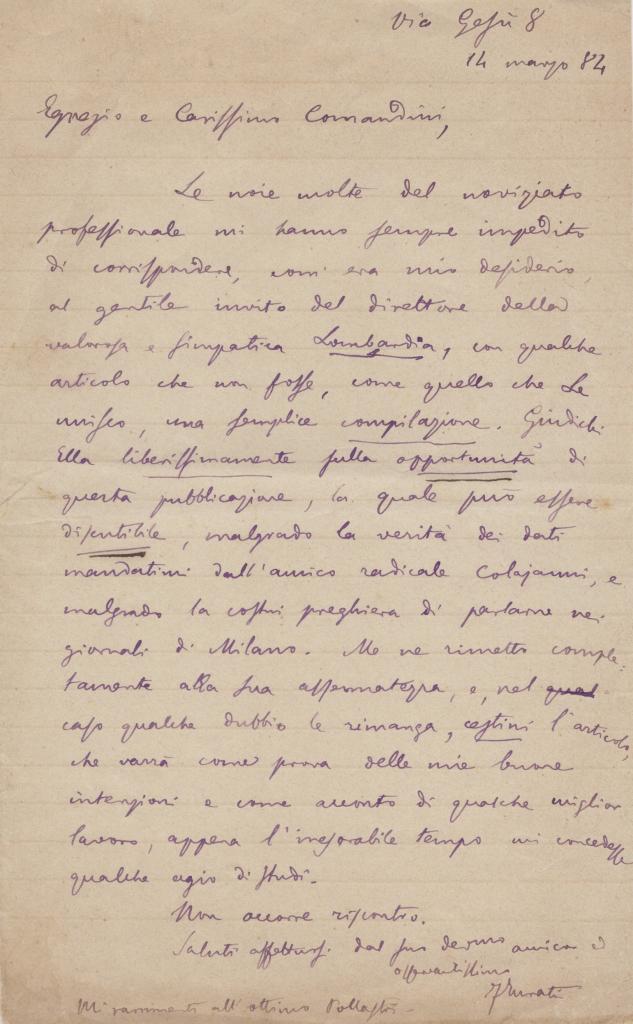 Via Gesù 8
14 marzo 84
Egregio e Carissimo Comandini,
Le noie molte del noviziato
professionale mi hanno sempre impedito
di corrispondere, com'era mio desiderio,
al gentile invito del direttore della
valorosa e simpatica Lombardia, con qualche
articolo che non fosse, come quello che Le
unisco, una semplice compilazione. Giudichi
Ella liberissimamente sulla opportunità di
questa pubblicazione, la quale può essere
discutibile, malgrado la verità dei dati
mandatimi dall'amico radicale Colajanni, e
malgrado la costui preghiera di parlarne nei
giornali di Milano. Me ne rimetto comple-
tamente alla Sua assennatezza, e, nel
caso qualche dubbio le rimanga, cestini l'articolo,
che varrà come prova delle mie buone
intenzioni e come acconto di qualche miglior
lavoro, appena l'inesorabile tempo mi concedesse
qualche agio di studi.
Non occorre riscontro.
Saluti affettuosi dal suo devmo amico ed
osservantissimo
FTurati
Mi rammenti all'ottimo